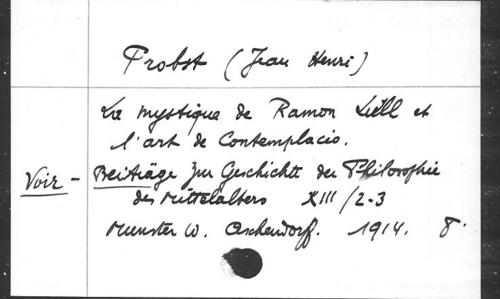 Probst (Jean Henri)
La mystique de Ramon Lull et
l'art de Contemplacio.
Voir - Beiträge zur Geschichte der Philosophie
des Mittelalters XIII/2-3
Munster W. Aschendorf. 1914. 8°